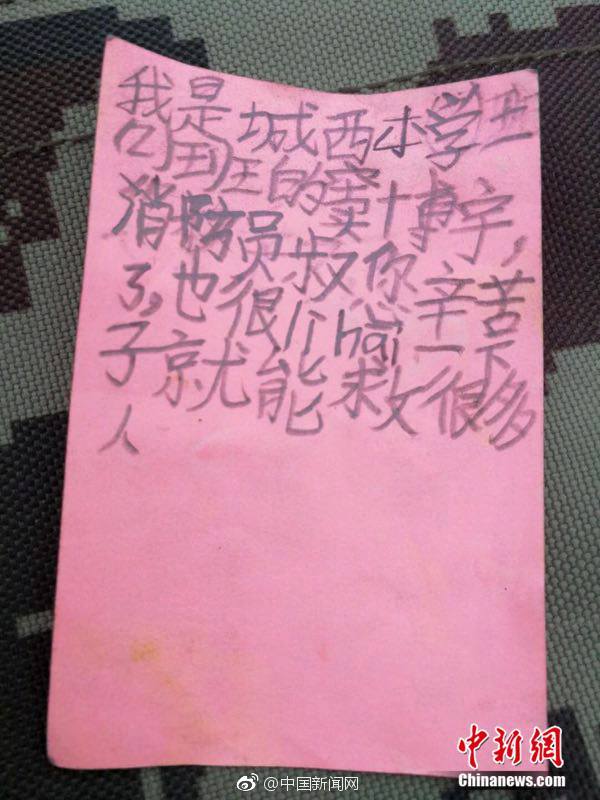 我是城西小学
班的窦博宇,
消防员叔你辛苦
了,也很厉hai一下
子就能救很多
人
@中国新闻网
中新网
Chinanews.com